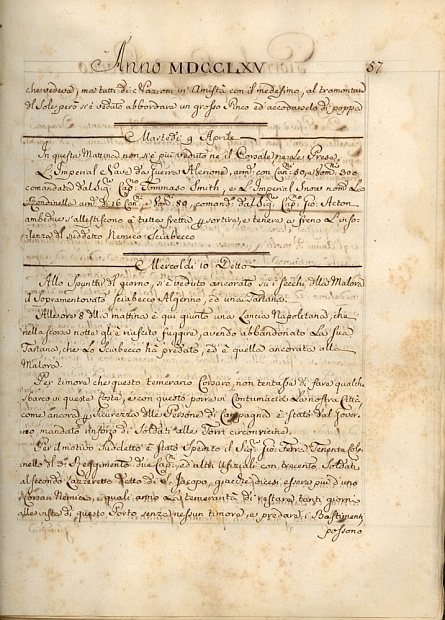 Anno MDCCLXV 57
che vedeva; ma tutti di Nazioni in Amistà con il medesimo, al tramontar
del Sole però si è veduto abbordare un grosso Pinco ed accodarsela di poppa
Martedì 9 Aprile
In questa Mattina non si è più veduto nè il Corsale nè le Prese.
L'Imperial Nave da Guerra Alerione, arm: con Can: 50, e Uom: 300
comandata dal Sig: Cap: Tommaso Smith, e L'Imperial Snow nom: La
Rondinella arm: di 16 Can: e Uom: 80, comand: dal Sig: Cap: Gio: Acton
ambedue s'allestiscono à tutta fretta p sortire, e tenere a freno L'inso-
lenza del suddetto Nemico Sciabecco
Mercoldì 10 Detto
Allo spuntar del giorno, si è veduto ancorato su i secchi della Malora
il Sopramentovato Sciabecco Algerino, con una Tartana.
Alle ore 8 della mattina è qui giunto una Lancia Napoletana, che
nella scorsa notte gli è riuscito fuggire, avendo abbandonato La sua
Tartana, che Lo Sciabecco hà predato, ed è quella ancorata alla
Malora.
Per timore che questo temerario Corsaro, non tentasse di fare qualche
sbarco in questa Costa, e con questo porre in Contumacia La nostra Città,
come ancora p sicurezza delle Persone di Campagna è stato dal Gover-
no, mandato rinforzo di Soldati alle Torri circonvicine.
Per il motivo Suddetto è stato Spedito il Sig: Gio: Tenente Colo-
nello del Reggimento due Cap: ed altri Ufiziali con trecento Soldati,
al secondo Lazzeretto detto di S. Jacopo, giacchè dicesi essere più d'uno
Corsari Nemici, i quali anno La temerarità di restare tanti giorni
alla vista di questo Porto, senza nessun timore, e predare i Bastimenti
possono